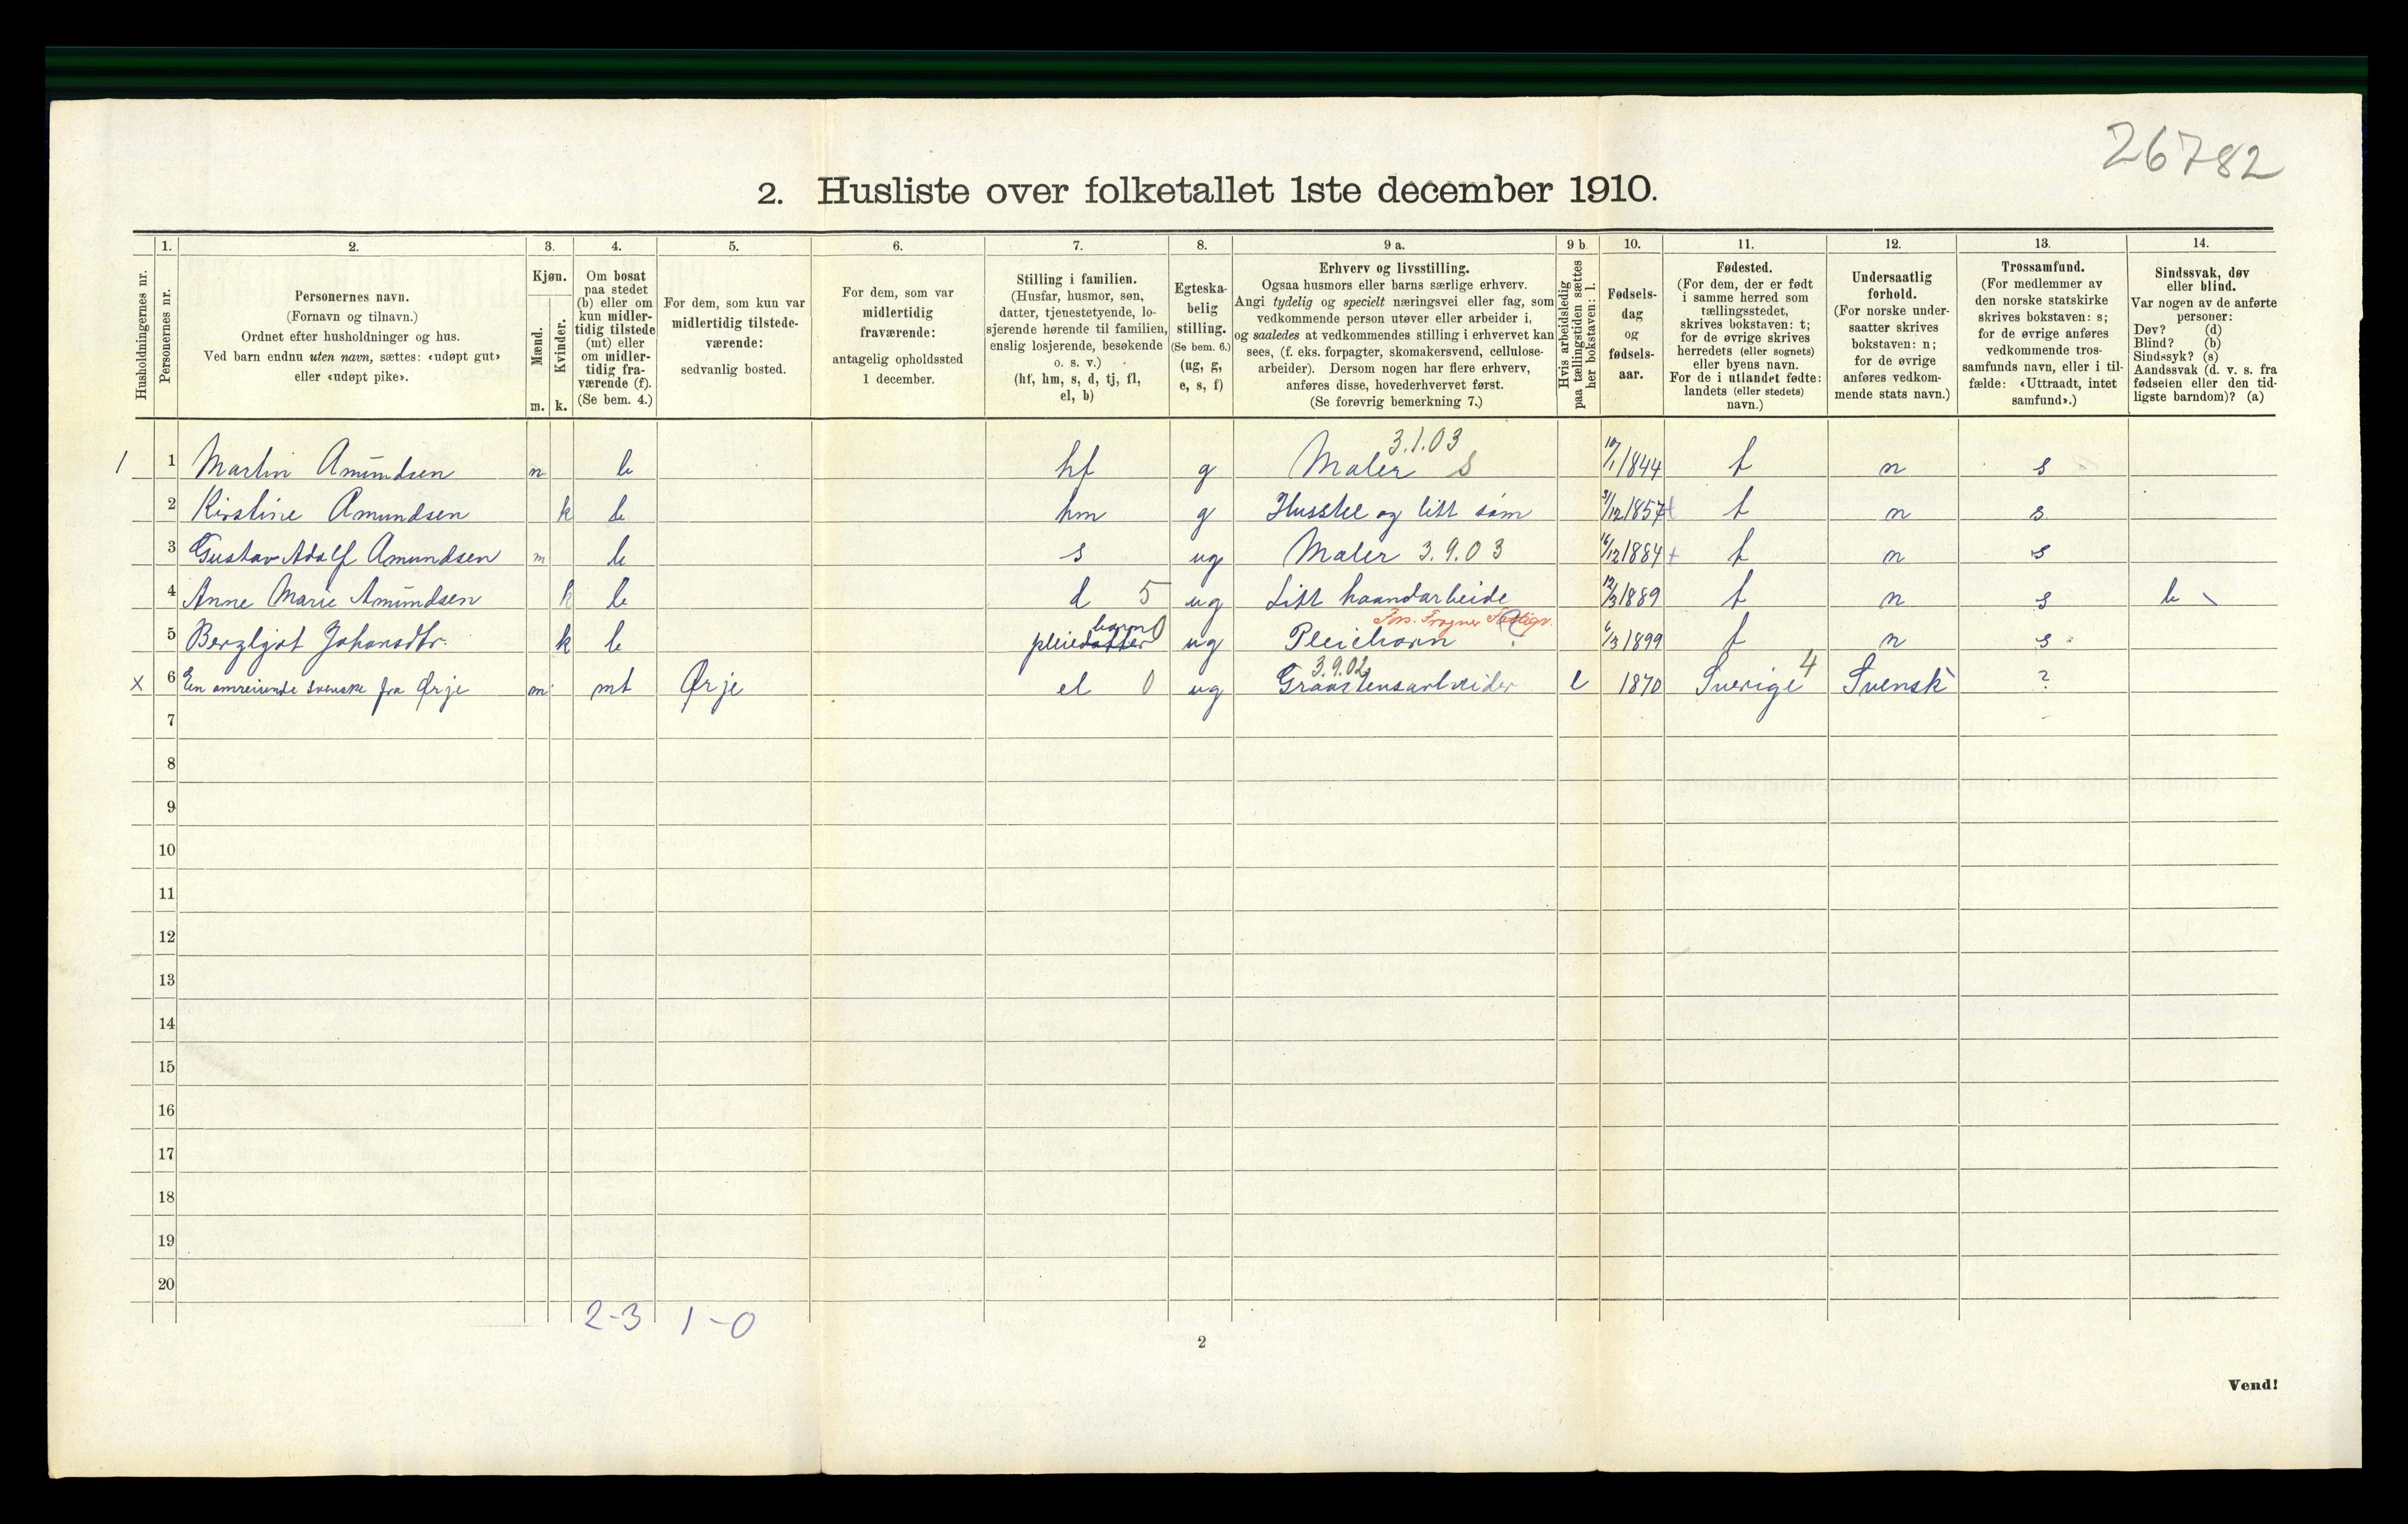 26782
2. Husliste over folketallet 1ste december 1910.
Husholdningernes nr.
1. Personernes nr.
2. Personernes navn.
(Fornavn og tilnavn.)
Ordnet efter husholdninger og hus.
Ved barn endnu uten navn, sættes: «udøpt gut»
eller «udøpt pike».
3. Kjøn.
Mænd. m.
Kvinder. k.
4. Om bosat
paa stedet
(b) eller om
kun midler-
tidig tilstede
(mt) eller
om midler-
tidig fra-
værende (f).
(Se bem. 4.)
5. For dem, som kun var
midlertidig tilstede-
værende:
sedvanlig bosted.
6. For dem, som var
midlertidig
fraværende:
antagelig opholdssted
1 december.
7. Stilling i familien.
(Husfar, husmor, søn,
datter, tjenestetyende, lo-
sjerende hørende til familien,
enslig losjerende, besøkende
o. s. v.)
(hf, hm, s, d, tj, fl,
el, b)
8. Egteska-
belig
stilling.
(Se bem. 6.)
(ug, g,
e, s, f)
9 a. Erhverv og livsstilling.
Ogsaa husmors eller barns særlige erhverv.
Angi tydelig og specielt næringsvei eller fag, som
vedkommende person utøver eller arbeider i,
og saaledes at vedkommendes stilling i erhvervet kan
sees, (f. eks. forpagter, skomakersvend, cellulose-
arbeider). Dersom nogen har flere erhverv,
anføres disse, hovederhvervet først.
(Se forøvrig bemerkning 7.)
9 b. Hvis arbeidsledig
paa tællingstiden sættes
her bokstaven: l.
10. Fødsels-
dag
og
fødsels-
aar.
11. Fødested.
(For dem, der er født
i samme herred som
tællingsstedet,
skrives bokstaven: t;
for de øvrige skrives
herredets (eller sognets)
eller byens navn.
For de i utlandet fødte:
landets (eller stedets)
navn.)
12. Undersaatlig
forhold.
(For norske under-
saatter skrives
bokstaven: n;
for de øvrige
anføres vedkom-
mende stats navn.)
13. Trossamfund.
(For medlemmer av
den norske statskirke
skrives bokstaven: s;
for de øvrige anføres
vedkommende tros-
samfunds navn, eller i til-
fælde: «Uttraadt, intet
samfund».)
14. Sindssvak, døv
eller blind.
Var nogen av de anførte
personer:
Døv? (d)
Blind? (b)
Sindssyk? (s)
Aandssvak (d. v. s. fra
fødselen eller den tid-
ligste barndom)? (a)
3.1.03
1 1 Martin Amundsen m b hf g Maler S 10/1 1844 t n s
2 Kirstine Amundsen k b hm g Husstel og litt søm 3/12 1857 t n s
3 Gustav Adolf Amundsen m b s ug Maler 3.9.03 16/12 1884 + t n s
4 Anne Marie Amundsen k b d 5 ug Litt haandarbeide 12/3 1889 t n s b
barn 0
5 Bergljot Johansdtr. k b pleiedatter ug Pleiebarn 6/3 1899 t n s
3.9.02
x 6 En omreisende svenske fra Ørje m mt Ørje el 0 ug Graastensarbeider l 1870 Sverige 4 Svensk ?
7
8
9
10
11
12
13
14
15
16
17
18
19
20
2-3 1-0
2
Vend!